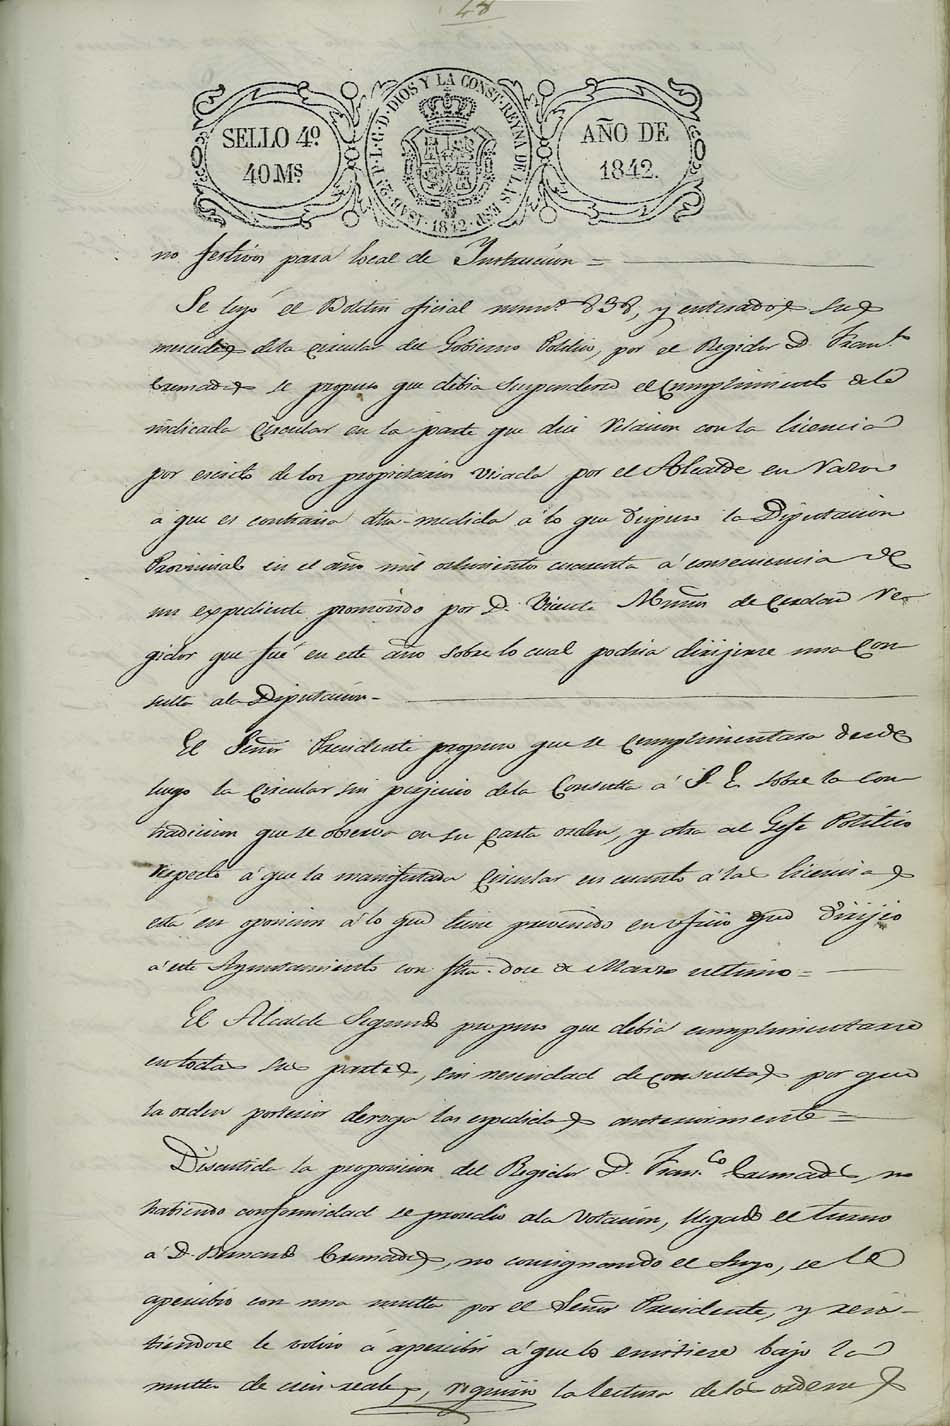 48
SELLO 4º.
40 Mˢ
ISAB. 2ª P. L. G. D. DIOS Y LA CONST. REYNA DE LAS ESP. 1842
AÑO DE
1842.
no festivos para local de Instrucción =
Se leyó el Boletin oficial num.º 838, y enterados sus
mercedes de la Circular del Gobierno Politico, por el Regidor D. Fran.co
se propuso que debia suspenderse el Cumplimiento de la
indicada Circular en la parte que dice relacion con la licencia
por escrito de los propietarios visada por el Alcalde en razon
á que es contraria dha. medida á lo que dispuso la Diputacion
Provincial en el año mil ochocientos cuarenta á consecuencia de
un expediente promovido por D. Vicente de Cerdan Re-
gidor que fué en este año sobre lo cual podria dirijirse una Con-
sulta ala Diputacion-
El Señor Presidente propuso que se Cumplimentara desde
luego la Circular sin perjuicio dela Consulta á S. E. sobre la Con-
tradicion que se observa en su Carta orden, y otra al Gefe Politico
respecto á que la manifestada Circular en cuanto á las licencias
está en oposicion á lo que tiene prevenido en oficio que dirijió
á este Ayuntamiento con fha. doce de Marzo ultimo =
El Alcalde Segundo propuso que debia cumplimentarse
en todas sus partes, sin necesidad de consultas por que
la orden posterior deroga las expedidas anteriormente =
Discutida la proposicion del Regidor D. Fran.co no
habiendo conformidad se procedio ala Votacion, llegado el turno
á D. no consignando el Suyo, se le
apercibio con una multa por el Señor Presidente, y resis-
tiendose le volvio á apercibir á que lo emitiese bajo la
multa de cien reales, la lectura delas ordenes